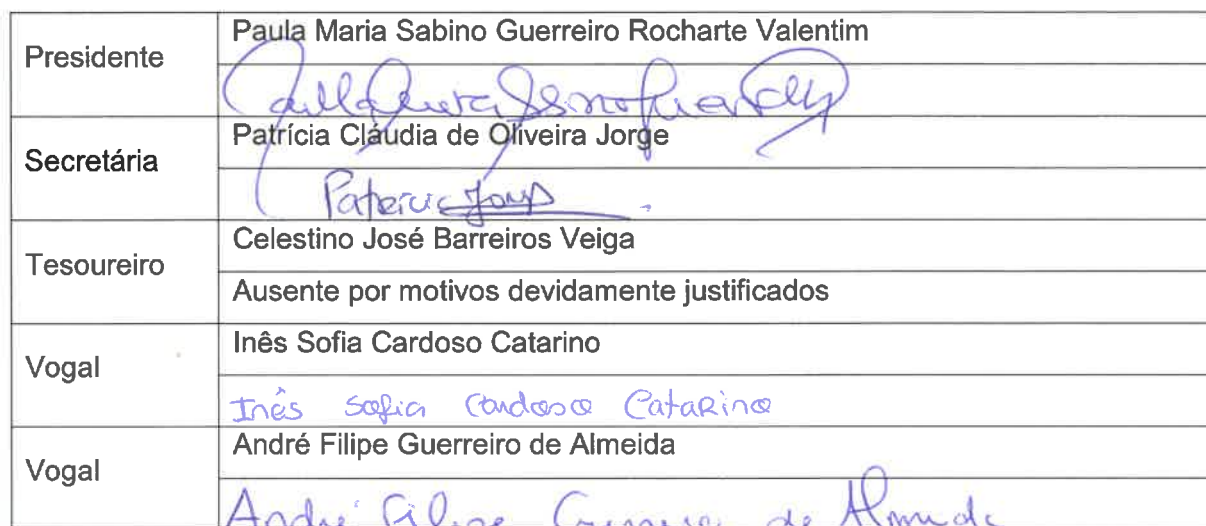 Presidente
Paula Maria Sabino Guerreiro Rocharte Valentim
Secretária
Patrícia Cláudia de Oliveira Jorge
Patrícia Jorge
Tesoureiro
Celestino José Barreiros Veiga
Ausente por motivos devidamente justificados
Vogal
Inês Sofia Cardoso Catarino
Inês Sofia Cardoso Catarino
Vogal
André Filipe Guerreiro de Almeida
André Filipe Guerreiro de Almeida